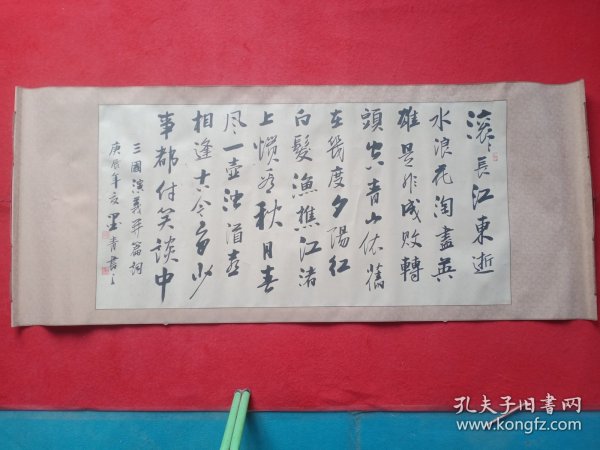 滚々長江東逝
水浪花淘盡英
雄是非成敗轉
頭空青山依舊
在幾度夕陽紅
白髮漁樵江渚
上慣看秋月春
风一壺浊酒喜
相逢古今多少
事都付笑談中
三國演義開篇詞
庚辰年夏墨青書之
孔夫子旧书网
www.kongfz.com